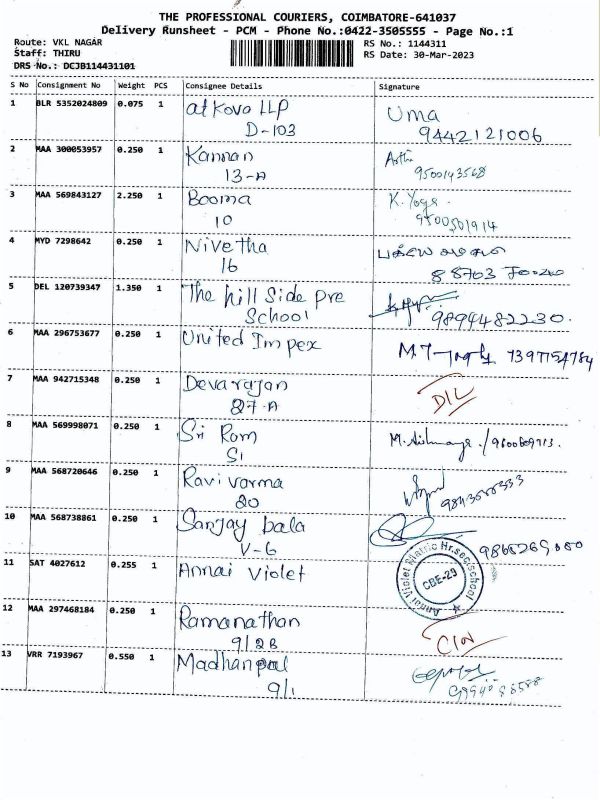 THE PROFESSIONAL COURIERS, COIMBATORE-641037
Delivery Runsheet - PCM - Phone No.:0422-3505555 - Page No.:1
Route: VKL NAGAR
RS No.: 1144311
Staff: THIRU
RS Date: 30-Mar-2023
DRS No.: DCJB114431101
S No Consignment No Weight PCS Consignee Details Signature
1 BLR 5352024809 0.075 1 atkova LLP Uma
D-103 9442121006
2 MAA 300053957 0.250 1 Kannan
13-A 9500143568
3 MAA 569843127 2.250 1 Booma K. Yoga
10
4 MYD 7298642 0.250 1 Nivetha
16
5 DEL 120739347 1.350 1 The hill Side pre
School 9894482230.
6 MAA 296753677 0.250 1 United Impex
7 MAA 942715348 0.250 1 Devarajan
27-A
8 MAA 569998071 0.250 1 Sri Ram
S1
9 MAA 568720646 0.250 1 Ravi varma
20
10 MAA 568738861 0.250 1 Sanjay bala
V-6
11 SAT 4027612 0.255 1 Annai Violet
Annai Violet Matric Hr.sec.school
CBE-29
12 MAA 297468184 0.250 1 Ramanathan
9/2B
13 VRR 7193967 0.550 1 Madhanpal
9/1